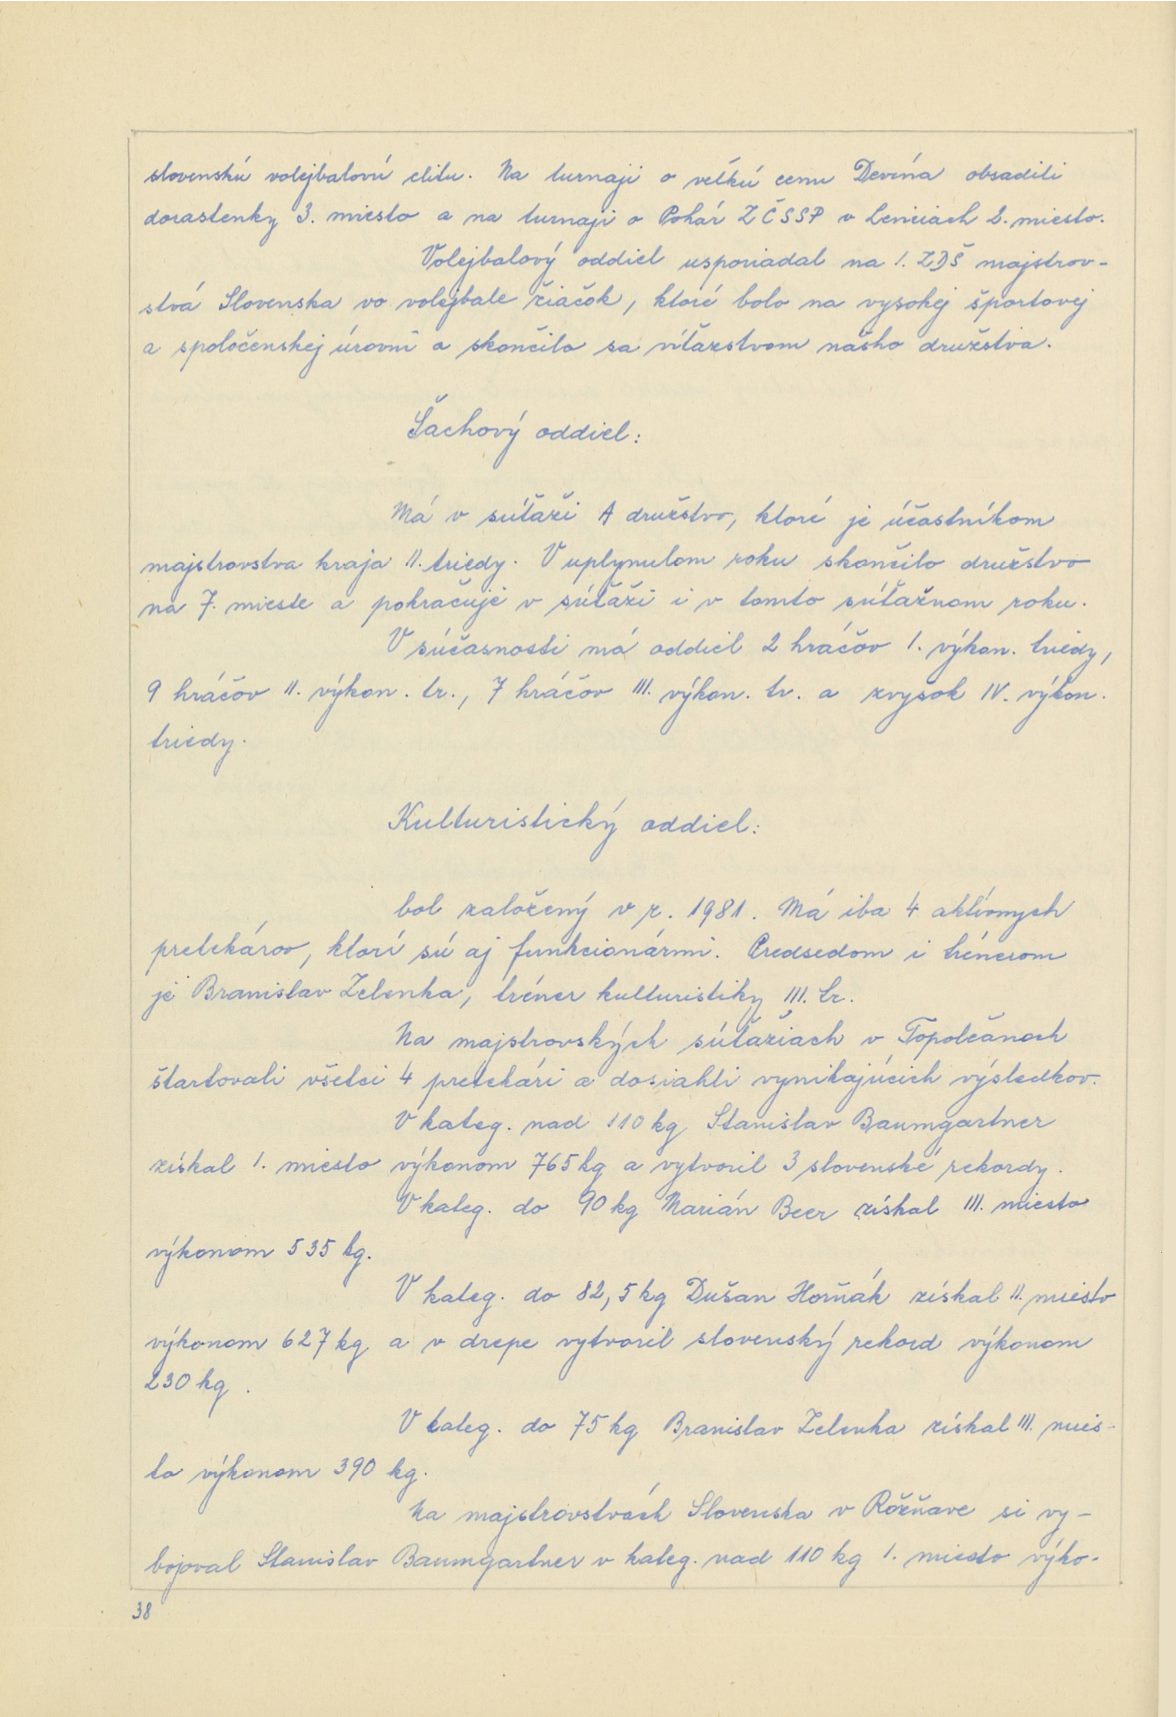 slovenskú volejbalovú elitu. Na turnaji o veľkú cenu Devína obsadili
dorastenky 3. miesto a na turnaji o Pohár ZČSSP v Leviciach 2. miesto.
Volejbalový oddiel usporiadal na 1. ZDŠ majstrov-
stvá Slovenska vo volejbale žiačok, ktoré bolo na vysokej športovej
a spoločenskej úrovni a skončilo sa víťazstvom nášho družstva.
Šachový oddiel:
Má v súťaži A družstvo, ktoré je účastníkom
majstrovstva kraja II. triedy. V uplynulom roku skončilo družstvo
na 7. mieste a pokračuje v súťaži i v tomto súťažnom roku.
V súčasnosti má oddiel 2 hráčov I. výkon. triedy,
9 hráčov II. výkon. tr., 7 hráčov III. výkon. tr. a zvyšok IV. výkon.
triedy.
Kulturistický oddiel:
bol založený v r. 1981. Má iba 4 aktívnych
pretekárov, ktorí sú aj funkcionármi. Predsedom i trénerom
je Branislav Zelenka, tréner kulturistiky III. tr.
Na majstrovských súťažiach v Topoľčanoch
štartovali všetci 4 pretekári a dosiahli vynikajúcich výsledkov.
V kateg. nad 110 kg Stanislav Baumgartner
získal 1. miesto výkonom 765 kg a vytvoril 3 slovenské rekordy.
V kateg. do 90 kg Marián Beer získal III. miesto
výkonom 535 kg.
V kateg. do 82,5 kg Dušan Horňák získal II. miesto
výkonom 627 kg a v drepe vytvoril slovenský rekord výkonom
230 kg.
V kateg. do 75 kg Branislav Zelenka získal III. mies-
to výkonom 390 kg.
Na majstrovstvách Slovenska v Rožňave si vy-
bojoval Stanislav Baumgartner v kateg. nad 110 kg 1. miesto výko-
38